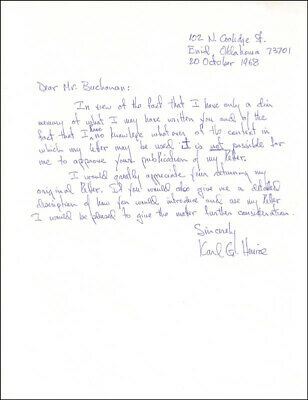 102 N. Coolidge St.
Enid, Oklahoma 73701
20 October 1968
Dear Mr. Buchanan:
In view of the fact that I have only a dim
memory of what I may have written you and of the
fact that I have no knowledge whatsoever of the context in
which my letter may be used it is not possible for
me to approve your publication of my letter.
I would greatly appreciate your returning my
original letter. If you would also give me a detailed
description of how you would introduce and use my letter
I would be pleased to give the matter further consideration.
Sincerely
Karl G.